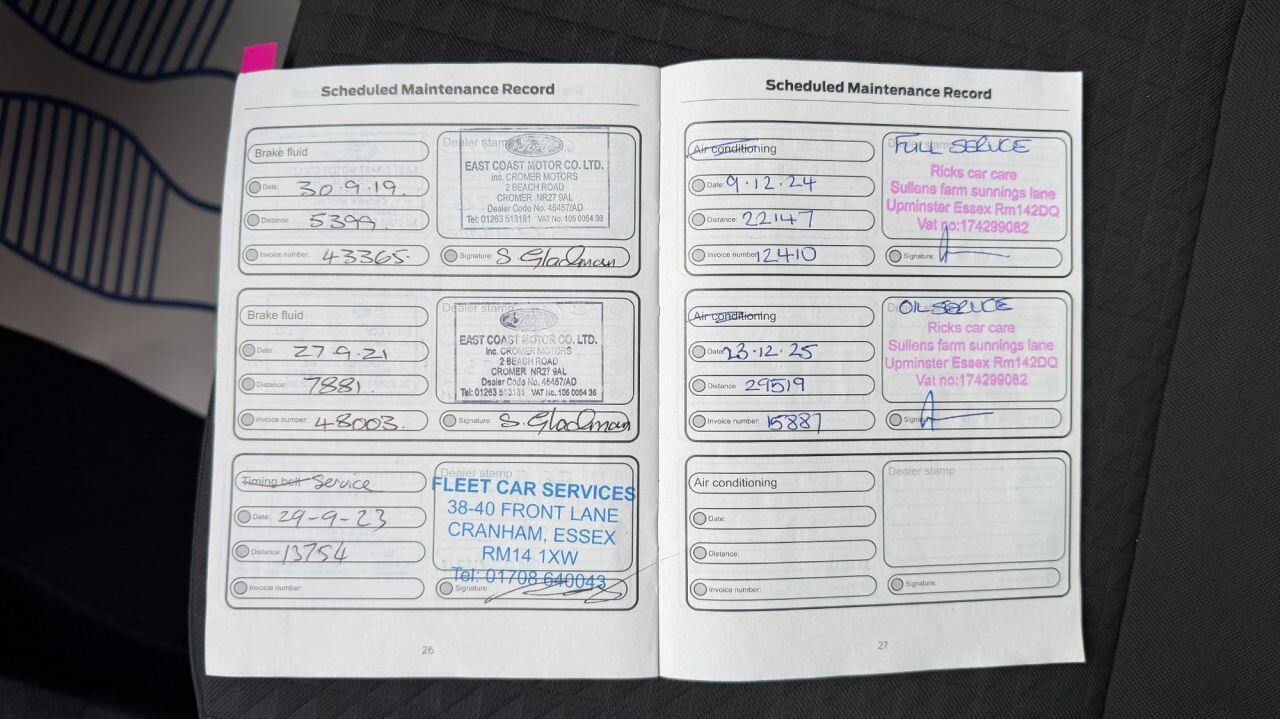 Scheduled Maintenance Record
Brake fluid
Date: 30.9.19.
Distance: 5399.
Invoice number: 43365.
Dealer stamp
Ford
EAST COAST MOTOR CO. LTD.
inc. CROMER MOTORS
2 BEACH ROAD
CROMER NR27 9AL
Dealer Code No. 45457/AD
Tel: 01263 513181 VAT No. 105 0054 36
Signature: S Gladman
Brake fluid
Date: 27.9.21
Distance: 7881.
Invoice number: 48003.
Dealer stamp
Ford
EAST COAST MOTOR CO. LTD.
inc. CROMER MOTORS
2 BEACH ROAD
CROMER NR27 9AL
Dealer Code No. 45457/AD
Tel: 01263 513181 VAT No. 105 0054 36
Signature: S. Gladman
Timing belt Service
Date: 29-9-23
Distance: 13754
Invoice number:
Dealer stamp
FLEET CAR SERVICES
38-40 FRONT LANE
CRANHAM, ESSEX
RM14 1XW
Tel: 01708 640043
Signature:
26
Scheduled Maintenance Record
Air conditioning
Date: 9.12.24
Distance: 22147
Invoice number: 12410
Dealer stamp
FULL SERVICE
Ricks car care
Sullens farm sunnings lane
Upminster Essex Rm142DQ
Vat no:174299062
Signature:
Air conditioning
Date: 23.12.25
Distance: 29519
Invoice number: 15887
Dealer stamp
OIL SERVICE
Ricks car care
Sullens farm sunnings lane
Upminster Essex Rm142DQ
Vat no:174299062
Signature:
Air conditioning
Date:
Distance:
Invoice number:
Dealer stamp
Signature:
27